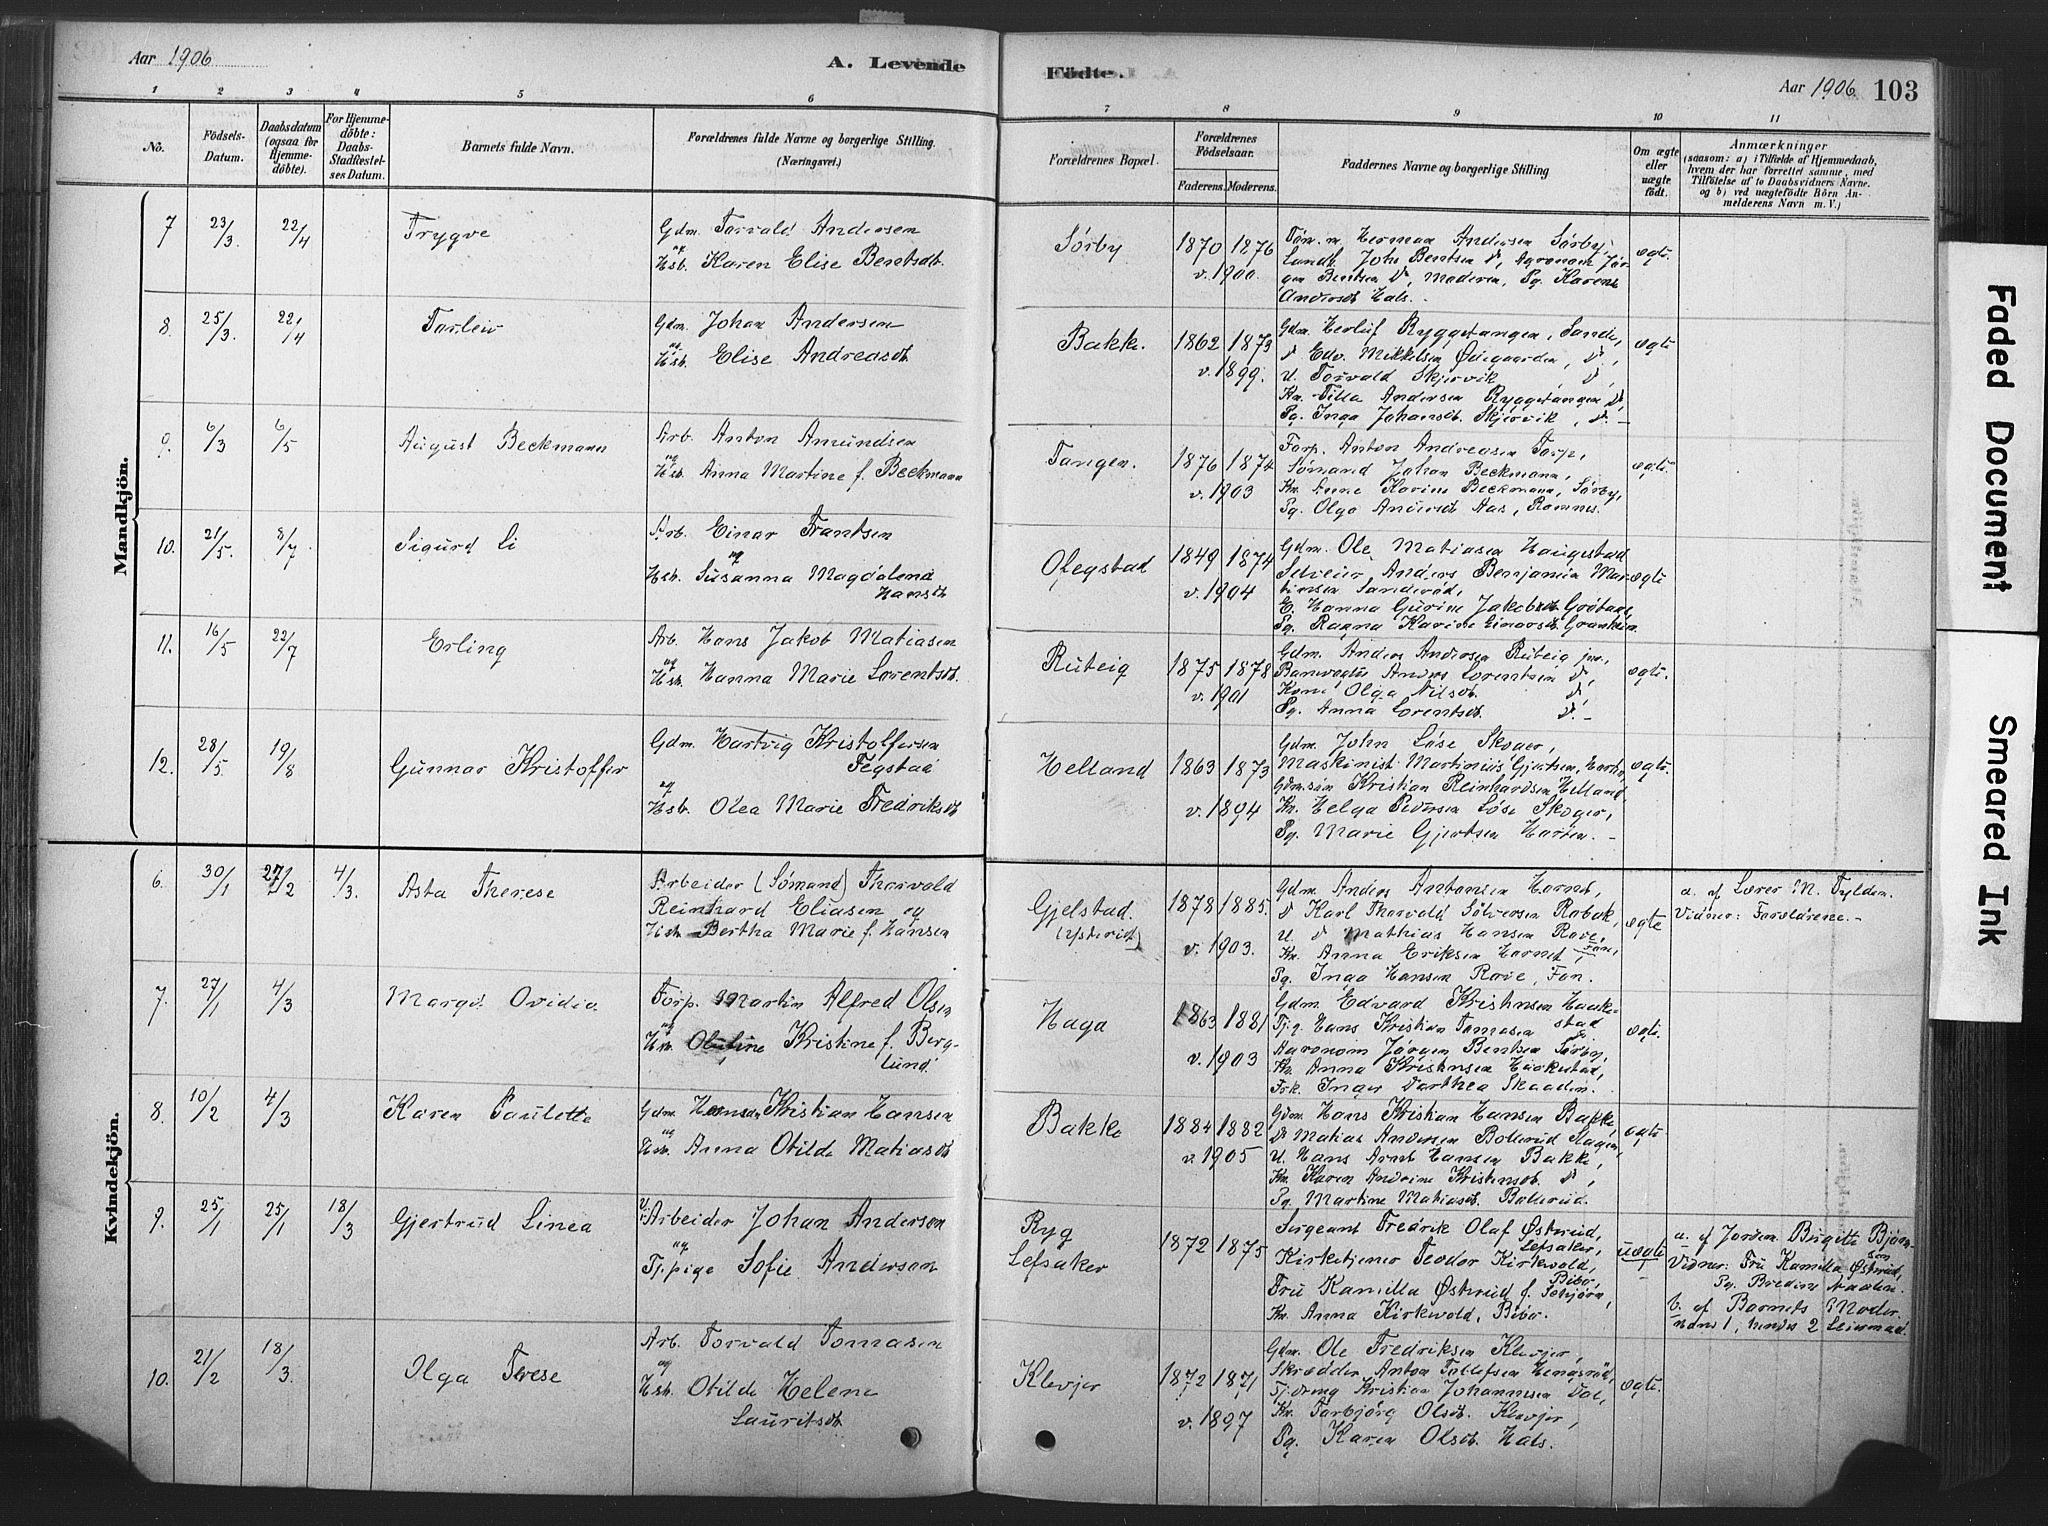 Aar 1906
A. Levende
Födte.
Aar 1906
103
1 2 3 4 5 6 7 8 9 10 11
No.
Födsels-
Datum.
Daabsdatum
(ogsaa for
Hjemme-
döbte).
For Hjemme-
döbte:
Daabs-
Stadfæstel-
ses Datum.
Barnets fulde Navn.
Forældrenes fulde Navne og borgerlige Stilling.
(Næringsvei.)
Forældrenes Bopæl.
Forældrenes
Födselsaar.
Faderens. Moderens.
Faddernes Navne og borgerlige Stilling
Om ægte
eller
uægte
födt.
Anmærkninger
(saasom: a) i Tilfælde af Hjemmedaab,
hvem der har forrettet samme, med
Tilföielse af to Daabsvidners Navne.
og b) ved uægtefödte Börn An-
melderens Navn m. V.)
Mandkjön.
7 23/3 22/4 Trygve
Gdm. Torvald Andersen
og Hsb. Karen Elise Bentsdt.
Sørby
1870 1876
v. 1900.
Tøm.m. Herman Andersen Sørby,
Landh. Johs Bentsen d, Agronom Jør-
gen Bentsen d, Moderen, Pg. Karen
Andersdt Hals.
ægte.
8. 25/3. 22/4 Torleiv
Gdm. Johan Andersen
og Hsb. Elise Andreasdt
Bakke.
1862 1873
v. 1899.
Gdm. Herlof Ryggetangen, Sande,
d Edv. Mikkelsen Ødegaarden, d,
U. Torvald Skjervik, d,
Kn. Tilla Andersen Ryggetangen d,
Pg. Inga Johansdt. Skjervik, d.
ægte
9. 6/3 6/5 August Beckmann
Arb. Anton Amundsen
og Hsb. Anna Martine f. Beckmann
Tangen.
1876 1874
v. 1903
Forp. Anton Andreasen Torp,
Sømand Johan Beckmann,
Kn. Anne Karine Beckmann, Sørby,
Pg. Olga Andersdt Aas, Ramnes.
ægte.
10. 21/5. 8/7 Sigurd Li
Arb. Einar Frantsen
og
Hsb. Susanna Magdalena
Hansdt
Olegstad
1849 1874
v. 1904
Gdm. Ole Matiasen Haugestad
Selveier Anders Benjamin Mar-
tinsen Sanderød,
E. Hanna Gurine Jakobsdt Grøtaas,
Pg. Ragna Karine Einarsdt.
ægte
11. 16/5 22/7 Erling
Arb. Hans Jakob Matiasen
og Hsb. Hanna Marie Lorentsdt.
Ruteig
1875 1878
v. 1901
Gdm. Anders Andersen Ruteig jun.,
Banevogter Anders Lorentsen d,
Kone Olga Nilsdt. d,
Pg. Anna Lorentsdt. d.
ægte.
12. 28/5. 19/8 Gunnar Kristoffer
Gdm. Hartvig Kristoffersen
Tegstad
og
Hsb. Olea Marie Fredriksdt
Helland
1863 1873
v. 1894
Gdm. John Løse Skoger,
Maskinist Martinius Gjertsen, Horten,
Gdm.søn Kristian Reinhardsen Helland,
Kn. Helga Pedersen Løse Skoger,
Pg. Marie Gjertsen Horten.
ægte.
Kvindekjön.
6. 30/1 27/2 4/3. Asta Therese
Arbeider (Sømand) Thorvald
Reinhard Eliasen og
Hsb. Bertha Marie f. Hansen
Gjelstad.
1878 1885.
v. 1903.
Gdm. Anders Antonsen Hornet,
d Karl Thorvald Sølversen Robæk,
U. d Mathias Hansen Rove,
Kn. Anna Eriksen Hornet,
Pg. Inga Hansen Rove, Fon.
ægte
a. af Lærer M. Tylden.
Vidner: Forældrene.
7. 27/1 4/3 Margit Ovidia
Forp. Martin Alfred Olsen
og Hsb. Olutine Kristine f. Berg-
lund
Haga
1863 1881
v. 1903
Gdm. Edvard Kristensen Hauke-
stad
Tj.g. Hans Kristian Tomasen
Agronom Jørgen Bentsen Sørby,
Kn. Anna Kristensen Haukestad,
Frk. Inger Dorthea Skaaden.
ægte.
8. 10/2 4/3 Karen Paulette
Gdm. Hans Kristian Hansen
og Hsb. Anna Otilde Matiasdt
Bakke
1884 1882
v. 1905
Gdm. Hans Kristian Hansen Bakke,
d Matias Andersen Bollerud Slagen,
U. Hans Arnt Hansen Bakke,
Kn. Karen Andrine Kristensdt. d,
Pg. Martine Matiasdt. Bollerud.
ægte
9. 25/1 25/1 18/3 Gjertrud Linea
Arbeider Johan Andersen
og
Tj.pige Sofie Andersen
Ryg
Lefsaker
1872 1875
Sergeant Fredrik Olaf Østrud,
Lefsaker,
Kirketjener Teodor Kirkevold,
Bibo,
Fru Kamilla Østrud f. Sebjørn,
Kn. Anna Kirkevold, Bibo.
uægte
1
a. af Jordm. Birgitte Bjørn-
sen
Vidner: Fru Kamilla Østrud,
Pg. Bredine Aadne.
b. af Barnets Moder.
hans 1, hendes 2 Leiermaal.
10. 21/2 18/3. Olga Terese
Arb. Torvald Tomasen
og
Hsb. Otilde Helene
Lauritsdt.
Klevjer
1872 1871
v. 1897
Gdm. Ole Fredriksen Klevjer,
Skrædder Anton Tollefsen Hengsrød,
Tj.dreng Kristian Johannesen Dal,
Kn. Torbjørg Olsdt. Klevjer,
Pg. Karen Olsdt. Hals.
ægte.
Faded Document
Smeared Ink